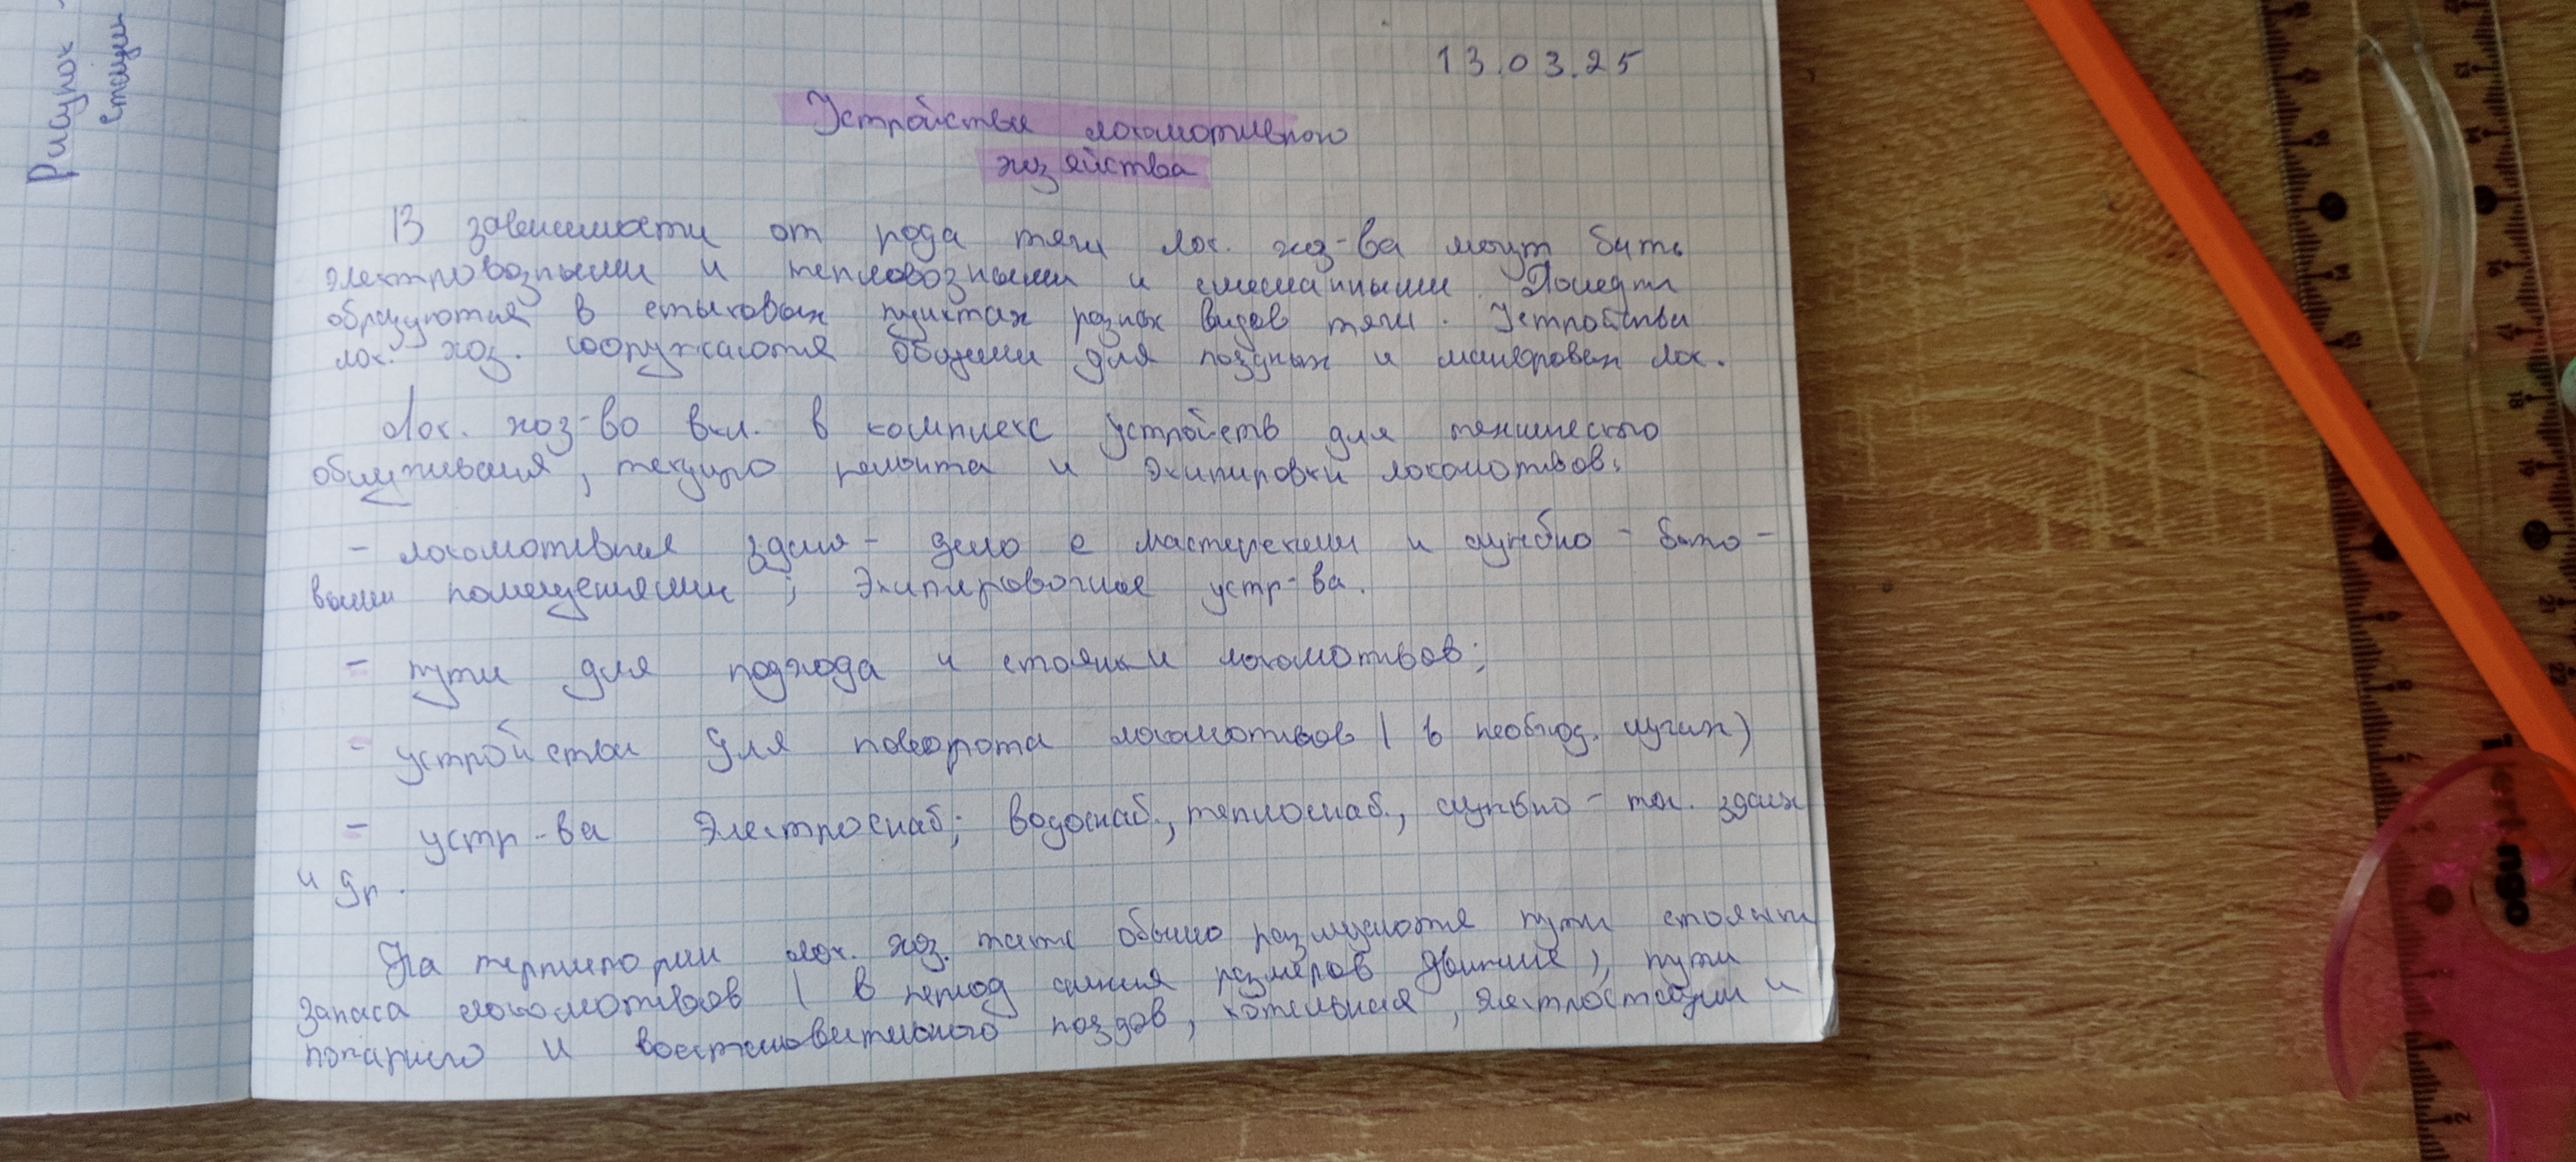 Рисунок
станции
13.03.25
Устройства локомотивного
хозяйства
В зависимости от рода тяги лок. хоз-ва могут быть
электровозными и тепловозными и смешанными. Последн
образуются в стыковых пунктах разных видов тяги. Устройства
лок. хоз. сооружаются общими для поздных и маневровых лок.
Лок. хоз-во вкл. в комплекс устройств для технического
обслуживания, текущего ремонта и экипировки локомотивов:
- локомотивная здания - депо с мастерскими и служебно - быто-
выми помещениями; Экипировочные устр-ва.
- пути для подхода и стоянки локомотивов;
- устройства для поворота локомотивов ( в необход. случаях)
- устр-ва Электроснаб; водоснаб., теплоснаб., служебно - тех. здания
и др.
На территории лок. хоз. также обычно размещаются пути стоянки
запаса локомотивов ( в период снижения размеров движение), пути
пожарного и восстановительного поздов, котельная, электростанции и